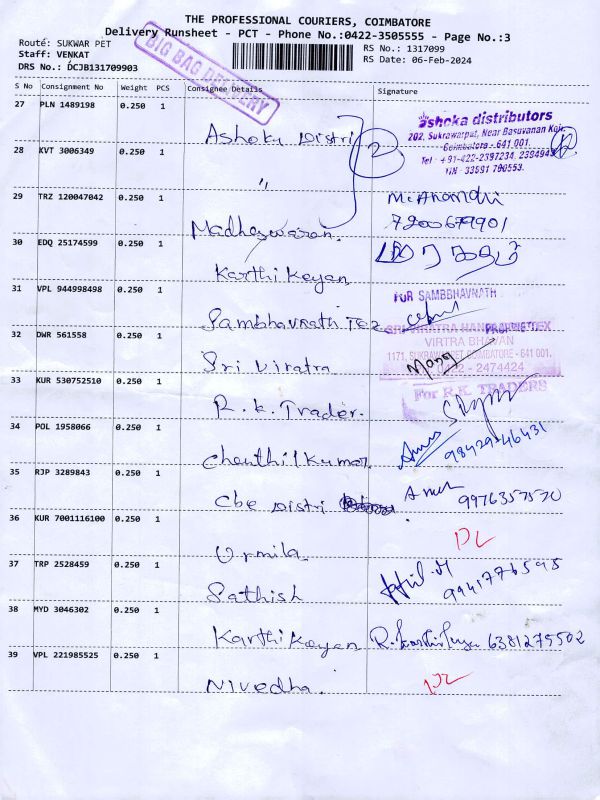 THE PROFESSIONAL COURIERS, COIMBATORE
Delivery Runsheet - PCT - Phone No.:0422-3505555 - Page No.:3
Route: SUKWAR PET
RS No.: 1317099
Staff: VENKAT
RS Date: 06-Feb-2024
DRS No.: DCJB131709903
BIG BAG DELIVERY
S No Consignment No Weight PCS Consignee Details Signature
27 PLN 1489198 0.250 1 Ashoka Distri
ashoka distributors
202, Sukrawarpet, Near Basuvanan Koil,
Coimbatore - 641 001.
Tel : +91-422-2397234, 2384943
TIN : 33591 780553.
2
28 KVT 3006349 0.250 1 "
29 TRZ 120047042 0.250 1 Madheswaran. M. Anandhi
7200679901
30 EDQ 25174599 0.250 1 Karthikeyan
31 VPL 944998498 0.250 1 Sambhavnath Tex
FOR SAMBHAVNATH
32 DWR 561558 0.250 1 Sri Viratra
VIRTRA BHAVAN
1171, SUKRAWARPET, COIMBATORE - 641 001.
0422 - 2474424
33 KUR 530752510 0.250 1 R.K. Trader.
For R.K. TRADERS
34 POL 1958066 0.250 1 Chenthil Kumar
98429-46431
35 RJP 3289843 0.250 1 Cbe Distri
9976357570
36 KUR 7001116100 0.250 1 Urmila. DL
37 TRP 2528459 0.250 1 Sathish
9941776595
38 MYD 3046302 0.250 1 Karthikeyan 6381275502
39 VPL 221985525 0.250 1 Nivedha.